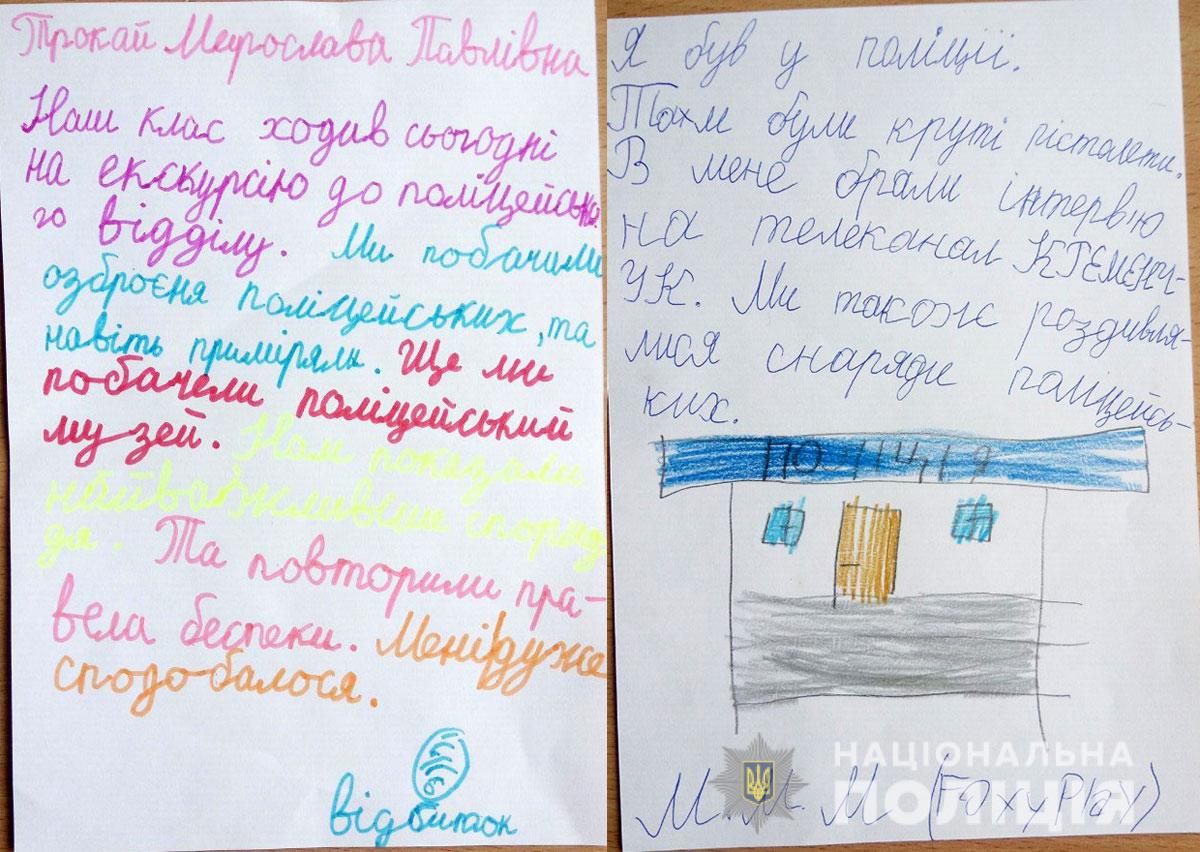 Трокай Мирослава Павлівна
Наш клас ходив сьогодні
на екскурсію до поліцейсько
го відділу. Ми побачили
озброєня поліцейських, та
навіть приміряли. Ще ми
побачели поліцейський
музей. Нам показали
найважливіше споряд
дя. Та повторили пра-
вела беспеки. Мені дуже
сподобалося.
відбиток
Я був у поліції.
Там були круті пісталети.
В мене брали інтервію
на телеканал КРЕМЕНЧ-
УК. Ми також роздивля-
лися снаряди поліцейсь-
ких.
ПОЛІЦІЯ
М. М. М
НАЦІОНАЛЬНА
ПОЛІЦІЯ